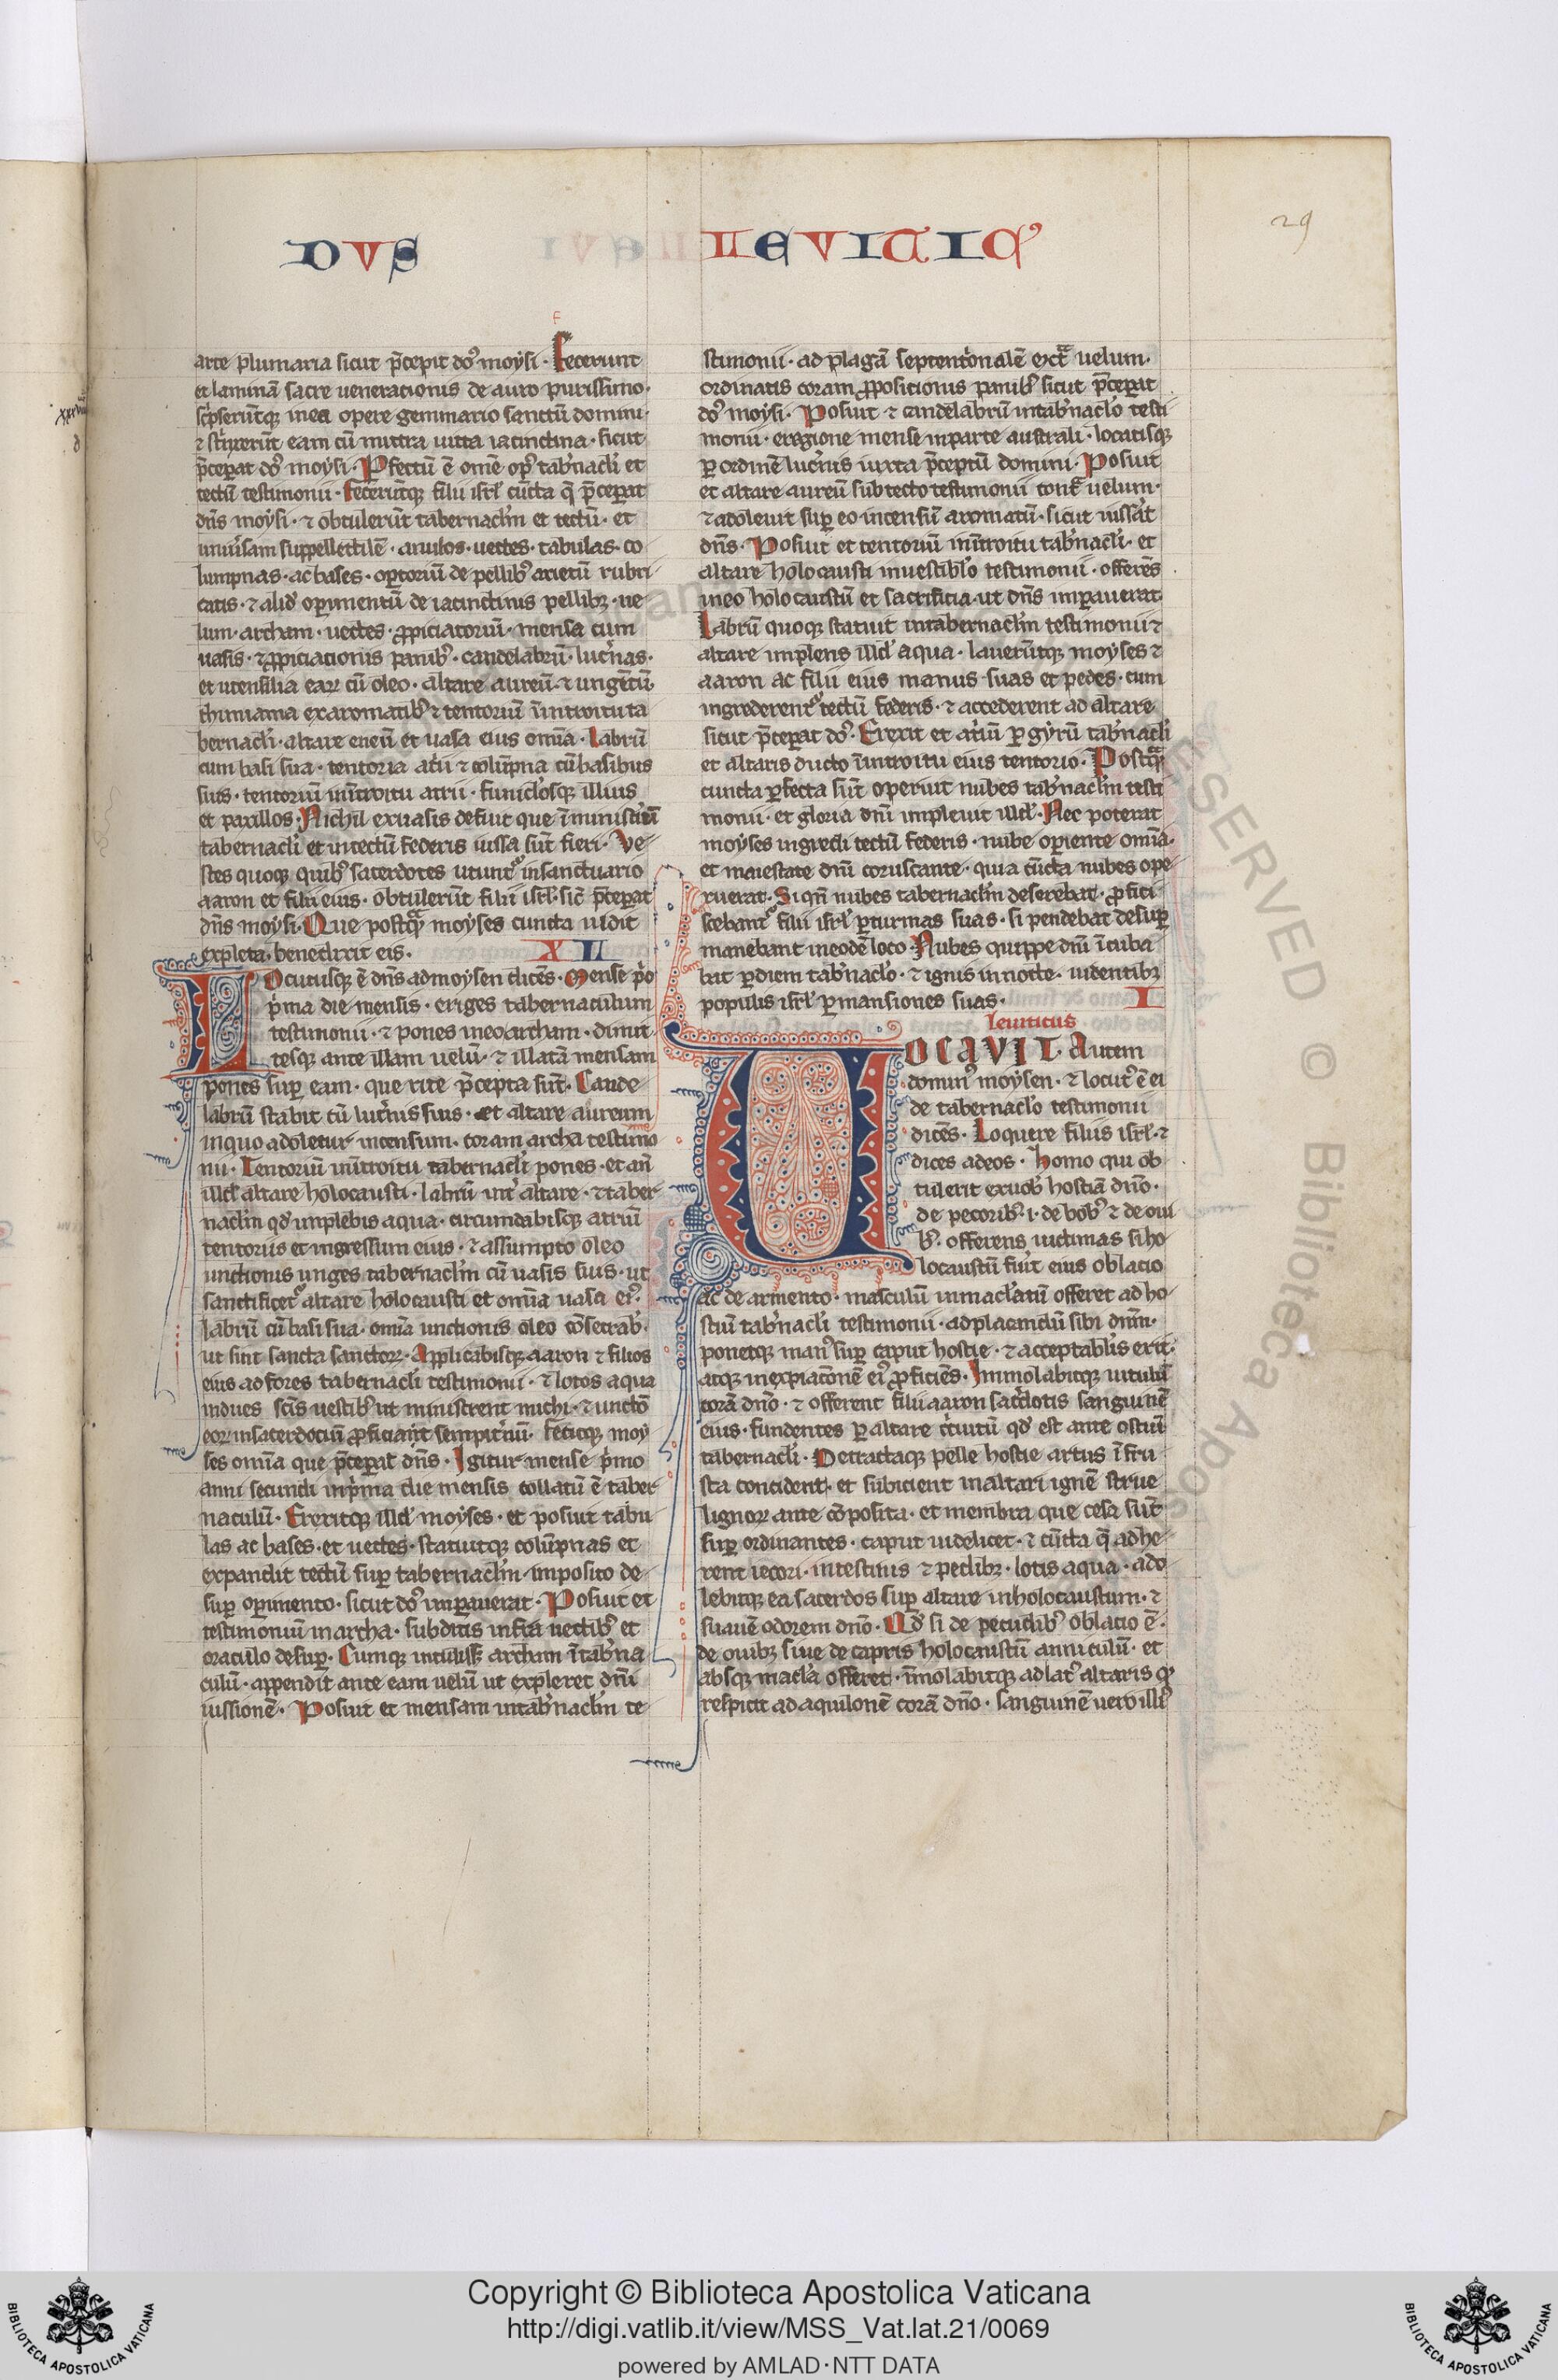 DVS
LEVITIC'
29
arte plumaria sicut p̄cepit dꝰs moysi · Fecerunt
et laminā sacre uenerationis de auro purissimo ·
sc̓pserūtqꝫ in ea opere gemmario sanctum domini ·
⁊ strīxerūt eam cū mittra uitta iacinctina · sicut
p̄ceperat dꝰs moysi · Pfectū ē omē opꝰ tab̓nacl̓i et
tectū testimonii · Fecerūtqꝫ filii isr̄l cūcta q̄ p̄ceperat
dn̄s moysi · ⁊ obtulerūt tabernacl̓m et tectū · et
uniūsam suppellectilē · anulos · uectes · tabulas · co
lumpnas · ac bases · opertoriū de pellibꝰ arietū rubri
catis · ⁊ aliđ operimentū de iacinctinis pellibꝫ · ue
lum · archam · uectes · ꝓpiciatoriū · mensā cum
uasis · ⁊ ꝓpiciationis panibꝰ · candelabrū · luc̓nas ·
et utensilia eaꝝ cū oleo · altare aureū · ⁊ ungētū
thimiama ex aromatibꝰ ⁊ tentoriū ī introitu ta
bernacl̓i · altare eneū et uasa eius om̄ia · labrū
cum basi sua · tentoria at̓ii ⁊ colūpna cū basibus
suis · tentoriū in introitu atrii · funicl̓osqꝫ illius
et paxillos · Nichil ex uasis defuit que ī ministīū
tabernacl̓i et in tectū federis iussa sūt fieri · Ve
stes quoqꝫ quibꝰ sacerdotes utuntꝰ in sanctuario
aaron et filii eius · obtulerūt filii isr̄l · sic̄ p̄ceperat
dn̄s moysi · Que postqᵃꝫ moyses cuncta uidit
expleta · benedixit eis ·
XL
Locutusqꝫ ē dn̄s ad moysen dicēs · Mense p̓o
p̓ma die mensis · eriges tabernaculum
testimonii · ⁊ pones in eo archam · dimit
tesqꝫ ante illam uelū · ⁊ illatā mensam
pones suꝑ eam · que rite p̄cepta sūt · Cande
labrū stabit cū luc̓nis suis · et altare aureum
in quo adoletur incensum · coram archa testimo
nii · Tentoriū in introitu tabernacl̓i pones · et an̄
illđ altare holocausti · labrū int̓ altare · ⁊ taber
nacl̓m qđ implebis aqua · circumdabisqꝫ atriū
tentoriis et ingressum eius · ⁊ assumpto oleo
unctionis unges tabernacl̓m cū uasis suis · ut
sanctificetꝰ altare holocausti et om̄ia uasa eiꝰ ·
labrū cū basi sua · om̄ia unctionis oleo cōsecrab̓ ·
ut sint sancta sanctoꝝ · Applicabisqꝫ aaron ⁊ filios
eius ad fores tabernacli testimonii · ⁊ lotos aqua
indues scīs uestibꝰ ut ministrent michi · ⁊ unctō
eoꝝ in sacerdotiū ꝓficiant sempit̓nū · Fecitqꝫ moy
ses om̄ia que p̄ceperat dn̄s · Igitur mense p̓mo
anni secundi in p̓ma die mensis collatū ē taber
naculū · Erexitqꝫ illđ moyses · et posuit tabu
las ac bases · et uectes · statuitqꝫ colūpnas et
expandit tectū suꝑ tabernacl̓m · imposito de
suꝑ operimento · sicut dꝰs impauerat · Posuit et
testimoniū in archa · subditis infra uectibꝰ et
oraculo desuꝑ · Cumqꝫ intulisꝫ archam ī tab̓na
culū · appendit ante eam uelū ut expleret dn̄i
iussionē · Posuit et mensam in tab̓nacl̓m te
stimonii · ad plagā septent̓onalē ext̄ᵃ uelum ·
ordinatis coram ꝓpositionis panibꝰ sicut p̄ceperat
dꝰs moysi · Posuit ⁊ candelabrū in tab̓nacl̓o testi
monii · e regione mense in parte australi · locatisqꝫ
ꝑ ordinē luc̓nis iuxta p̄ceptū domini · Posuit
et altare aureū sub tecto testimonii cont̄ᵃ uelum ·
⁊ adoleuit suꝑ eo incensū aromatū · sicut iusserat
dn̄s · Posuit et tentoriū in introitu tab̓nacl̓i · et
altare holocausti in uestibl̓o testimonii · offerēs
in eo holocaustū et sacrificia · ut dn̄s imperauerat
Labrū quoqꝫ statuit in tabernacl̓m testimonii ⁊
altare implens illđ aqua · lauerūtqꝫ moyses ⁊
aaron ac filii eius manus suas et pedes · cum
ingrederentꝰ tectū federis · ⁊ accederent ad altare
sicut p̄ceperat dꝰs · Erexit et at̓iū ꝑ gyrū tab̓nacl̓i
et altaris ducto ī introitu eius tentorio · Postqᵃꝫ
cuncta ꝑfecta sūt operuit nubes tab̓nacl̓m testi
monii · et gloria dn̄i impleuit illđ · Nec poterat
moyses ingredi tectū federis · nube operiente om̄ia ·
et maiestate dn̄i coruscante · quia cūcta nubes ope
ruerat · Si qn̄ nubes tabernacl̓m deserebat · ꝓfici
scebantꝰ filii isr̄l ꝑ turmas suas · si pendebat desuꝑ
manebant in eodē loco · Nubes quippe dn̄i īcuba
bat ꝑ diem tab̓nacl̓o · ⁊ ignis in nocte · uidentibꝫ
populis isr̄l ꝑ mansiones suas ·
I
leuiticus
VOCAVIT · Autem
dominꝰ moysen · ⁊ locutꝰ ē ei
de tabernacl̓o testimonii
dicēs · Loquere filiis isr̄l · ⁊
dices ad eos · Homo qui ob
tulerit ex uob̓ hostiā dn̄o ·
de pecoribꝰ · i · de bobꝰ ⁊ de oui
bꝰ · offerens uictimas si ho
locaustū fu̓it eius oblatio
ac de armento · masculū inmacl̓atū offeret ad ho
stiū tab̓nacl̓i testimonii · ad placandū sibi dn̄m ·
ponetqꝫ manꝰ suꝑ caput hostie · ⁊ acceptabl̓is erit ·
atqꝫ in expiatōnē eiꝰ ꝓficiēs · Immolabitqꝫ uitulū
corā dn̄o · ⁊ offerent filii aaron sac̓dotis sanguinē
eius · fundentes ꝑ altare c̓cuitū qđ est ante ostiū
tabernacl̓i · Detractaqꝫ pelle hostie artus ī fru
sta concident · et subicient in altari ignē strue
lignoꝝ ante cōposita · et membra que cesa sūt
suꝑ ordinantes · caput uidelicet · ⁊ cūcta q̄ adhe
rent iecori · intestinis ⁊ pedibꝫ · lotis aqua · ado
lebitqꝫ ea sacerdos suꝑ altare in holocaustum · ⁊
suauē odorem dn̄o · Qđ si de pecudibꝰ oblatio ē ·
de ouibꝫ siue de capris holocaustū anniculū · et
absqꝫ macl̓a offeret · īmolabitqꝫ ad latꝰ altaris qđ
respicit ad aquilonē corā dn̄o · sanguinē uero illiꝰ
RESERVED © Biblioteca Apos
Copyright © Biblioteca Apostolica Vaticana
http://digi.vatlib.it/view/MSS_Vat.lat.21/0069
powered by AMLAD·NTT DATA
BIBLIOTECA APOSTOLICA VATICANA
BIBLIOTECA APOSTOLICA VATICANA